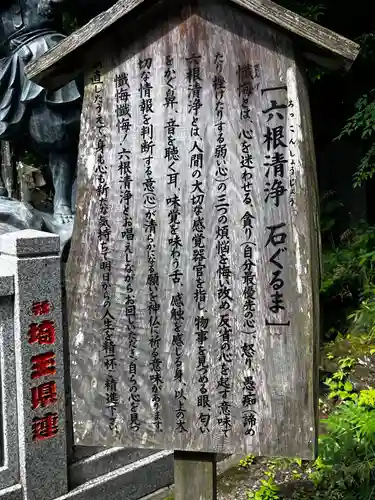 ろっこんしょうじょう
「六根清浄 石ぐるま」
懺悔とは、心を迷わせる、貪り（自分最優先の心）、怒り、愚痴（諦め
たり、憎んだりする弱い心）の三つの煩悩を悔い改め、反省の心を起す意味
六根清浄とは、人間の大切な感覚器官を指し、物事を見つめる眼、匂い
をかぐ鼻、音を聴く耳、味覚を味わう舌、感触を感じる身、以上の大
切な情報を判断する意（心）が清らかになる願いを神仏に祈る意味であります。
懺悔懺悔、六根清浄とお唱えしながらお回しいただき、自らの心を見
直したうえで、身も心も新たな気持ちで明日からの人生を精一杯ご精進下さい。
埼玉県